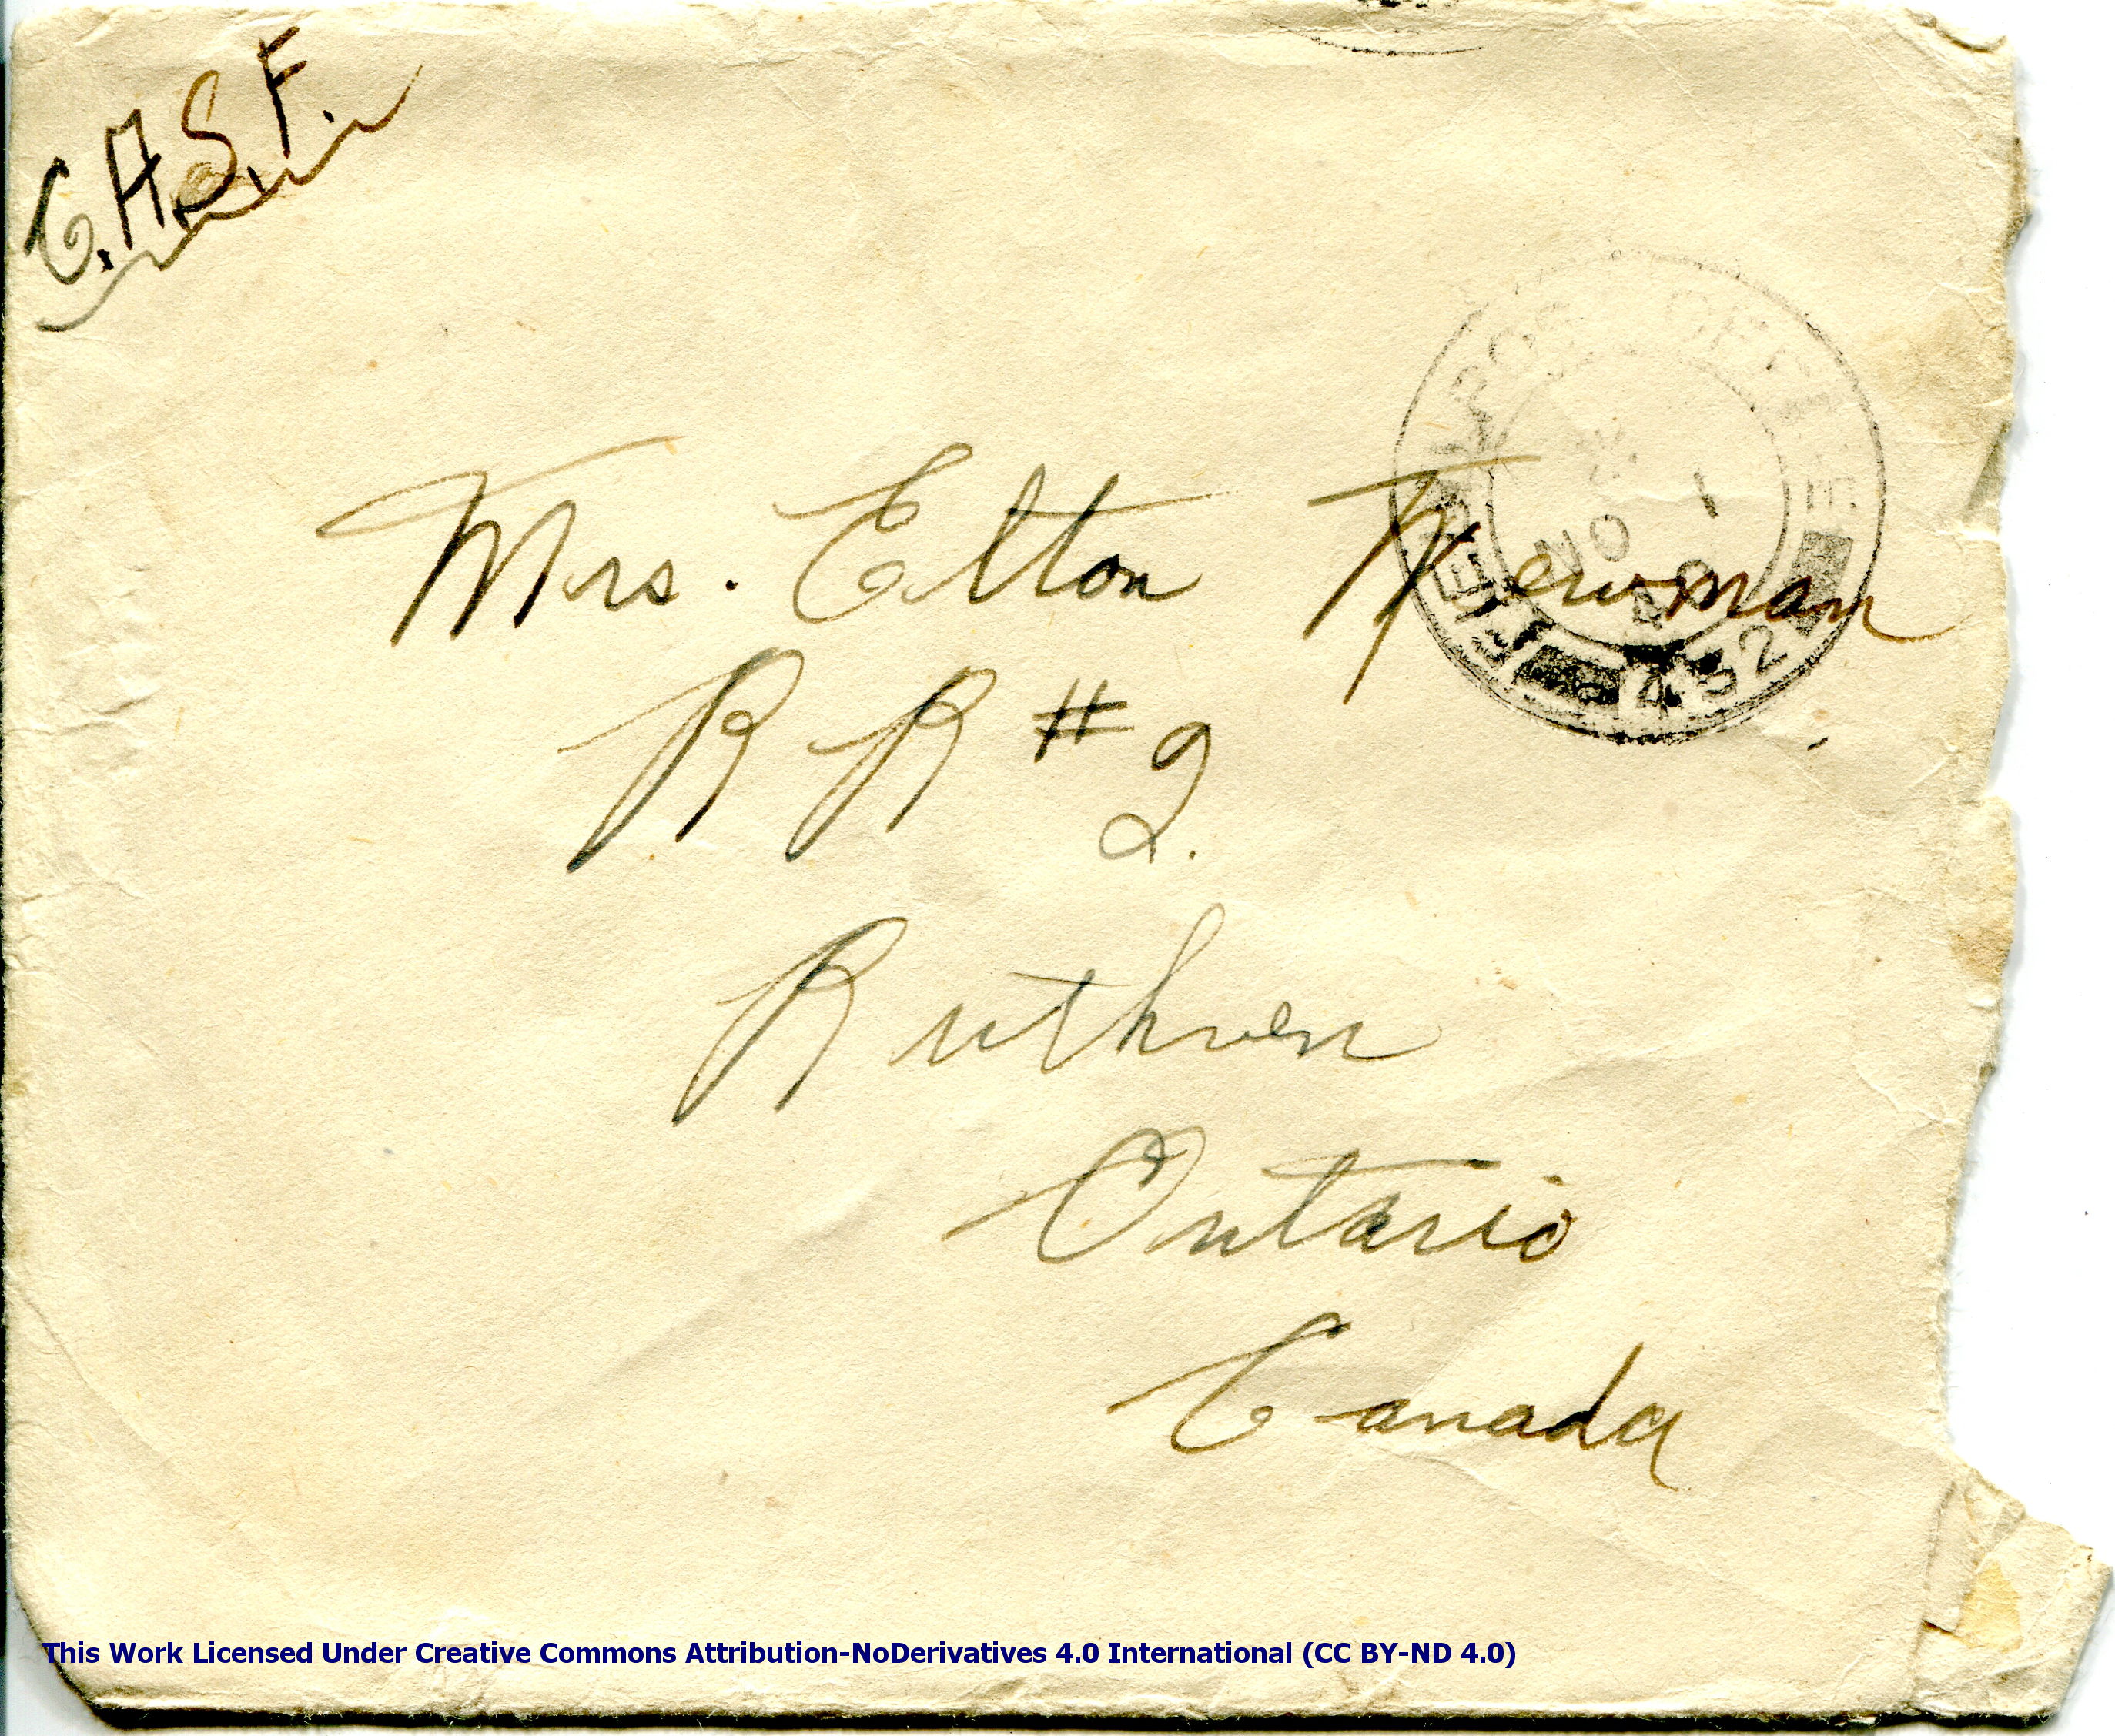 C.A.S.F.
FIELD POST OFFICE
NO 1
4
432
Mrs. Elton Newman
RR #2.
Ruthven
Ontario
Canada
This Work Licensed Under Creative Commons Attribution-NoDerivatives 4.0 International (CC BY-ND 4.0)